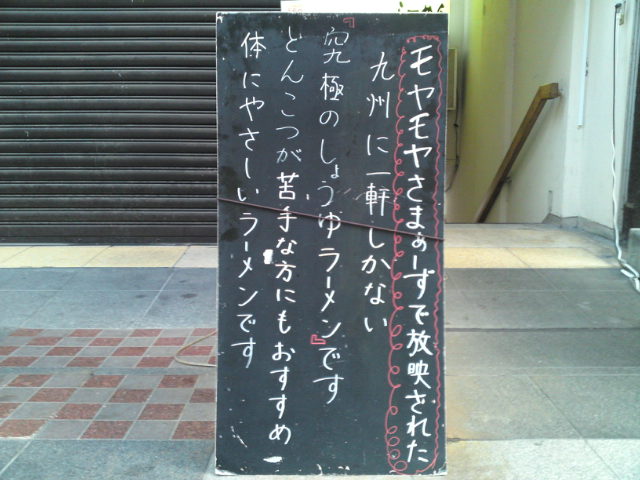 モヤモヤさまぁーずで放映された
九州に一軒しかない
『究極のしょうゆラーメン』です
とんこつが苦手な方にもおすすめ
体にやさしいラーメンです